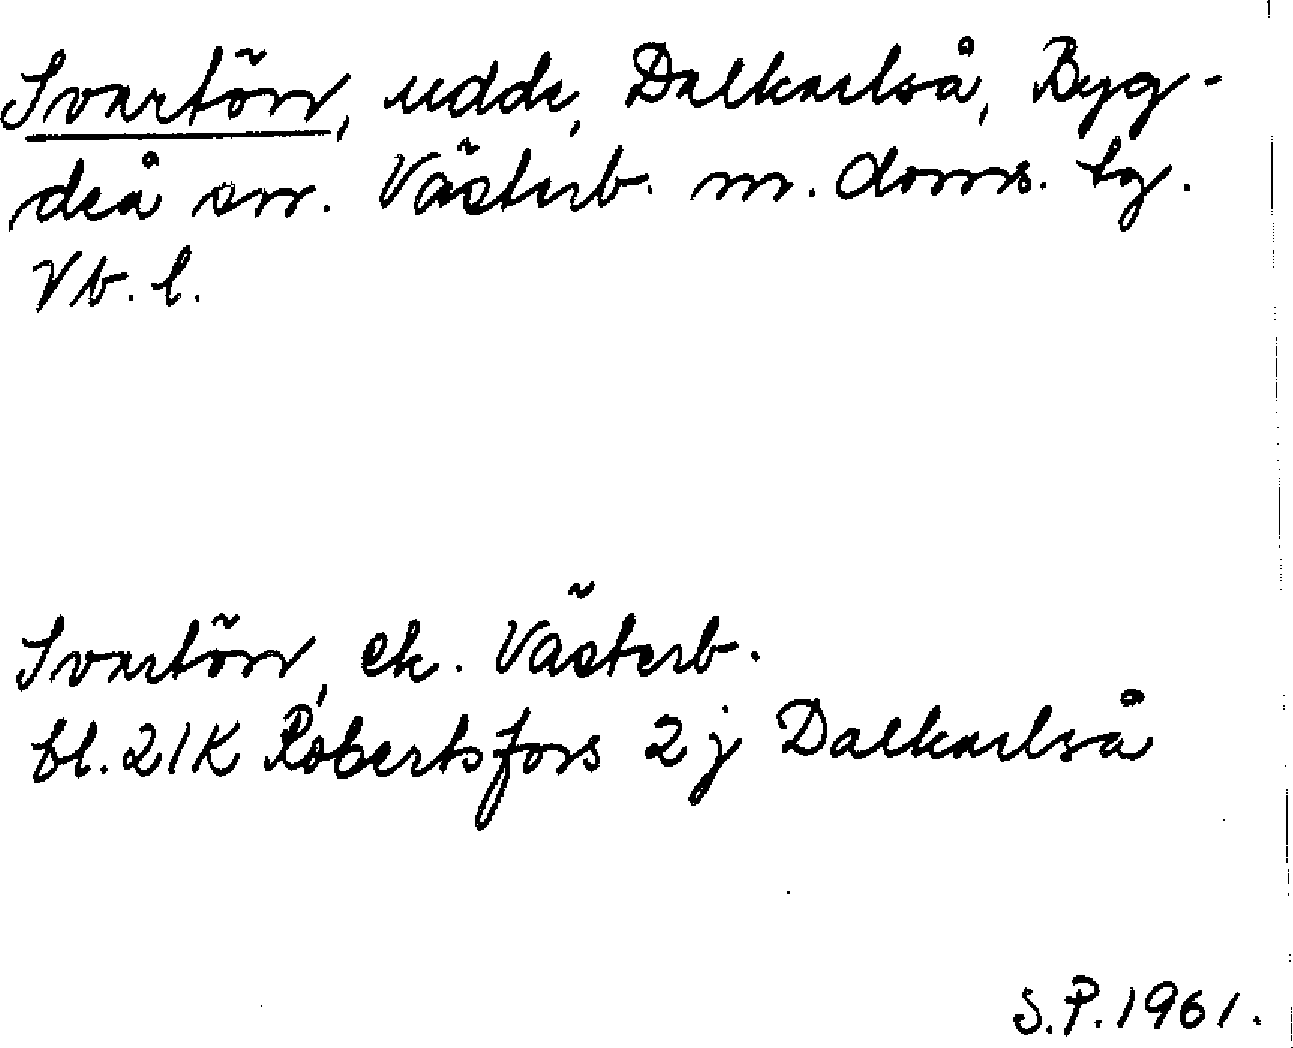 Svartörr, udde, Dalkarlså, Byg-
deå sn. Västerb. m. doms. tg.
Vb. l.
Svartörr, ek. Västerb.
bl. 21K Robertsfors 2j Dalkarlså
S.P. 1961.